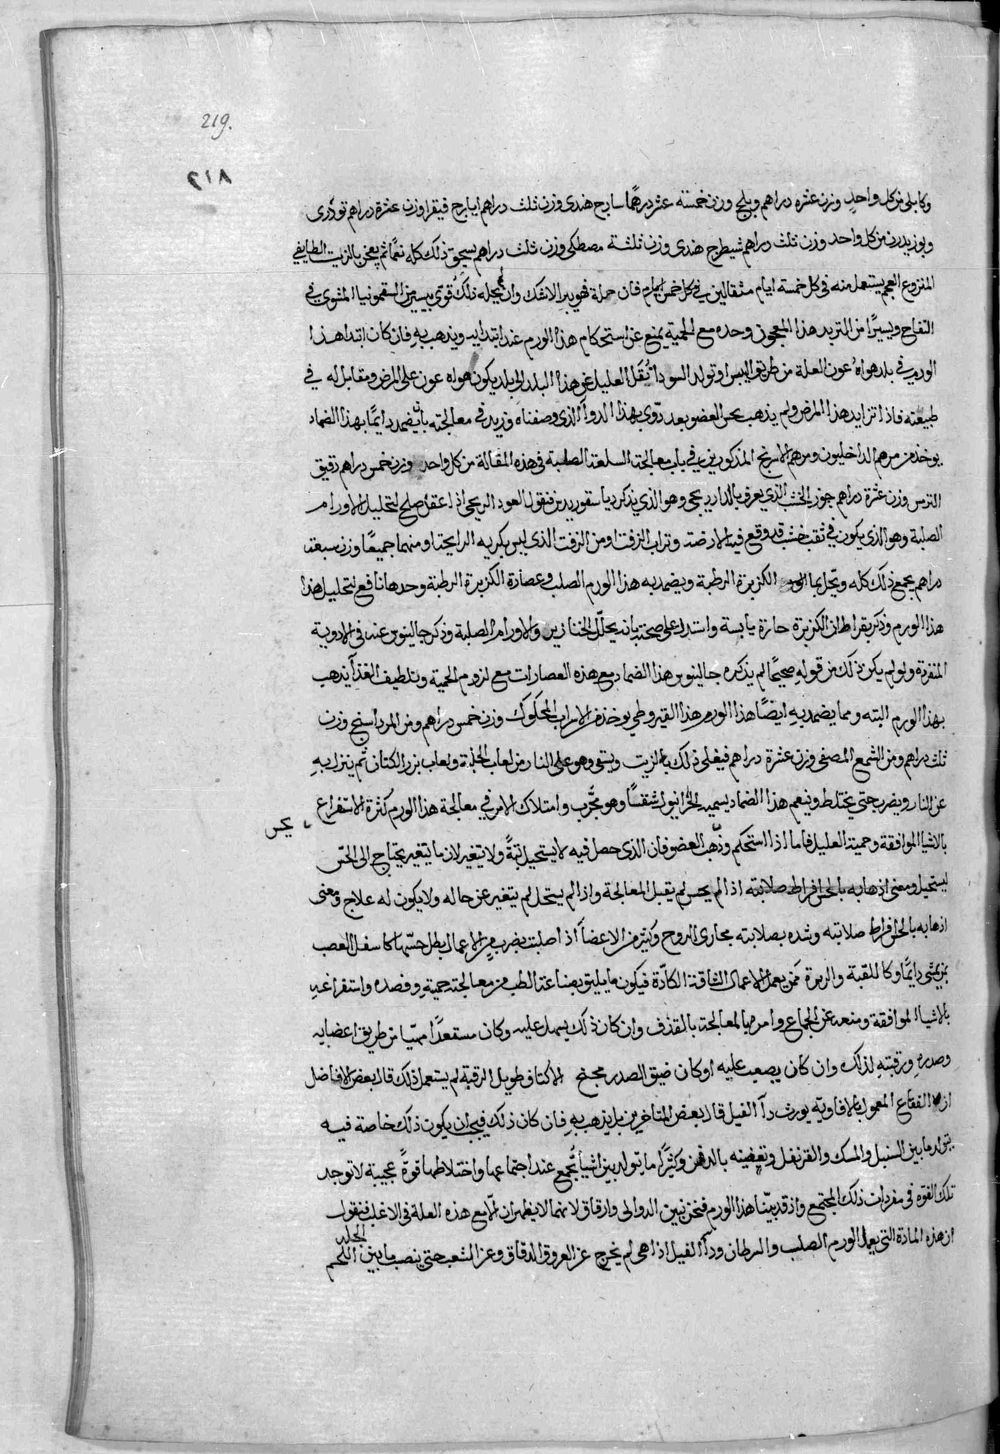 219.
٢١٨
وكابلي من كل واحد وزن عشرة دراهم وبليلج وزن خمسة عشر درهما سادج هندى وزن ثلث دراهم ايارج فيقرا وزن عشرة دراهم تودرى
وبوزيدان من كل واحد وزن ثلث دراهم شيطرج هندى وزن ثلثة مصطكى وزن ثلث دراهم يسحق ذلك كله نعمّا ثم يعجن بالزبيب الطايفي
المنزوع العجم يستعمل منه في كل خمسة ايام مثقالين في كل خمس ايام فان حمله فهو يبرا لاشك وان لم يحله ذلك قوى بيسير من السقمونيا المشوى في
التفاح ويسيرًا من التربد هذا المعجون وحده مع الحمية يمنع عن استحكام هذا الورم عند ابتدايه ويذهب به فان كان ابتدا هذا
الورم في بلد هواه عون العلة من طريق اليبس او تولد السودا نُقل العليل عن هذا البلد الى بلد يكون هواه عون على المرض ومقابل له في
طبيعته فاذا تزايد هذا المرض ولم يذهب بحس العضو بعد دوّى بهذا الدوآ الذى وصفناه وزيد في معالجته بان يضمد دايمًا بهذا الضماد
يوخذ من مرهم الداخليون ومرهم الاسرنج المذكورين في باب معالجة السلعة الصلبة في هذه المقالة من كل واحد وزن خمس دراهم دقيق
الترس وزن عشرة دراهم جوز الخشب الذى يعرف بالدار بجى وهو الذى يذكر دياسقوريدس فنقول العود الريحى اذا عتق اصلح لتحليل الاورام
الصلبة وهو الذى يكون في ثقب خشب قد وقع فيه الارضة وتراب الزفت او من الزفت الذى ليس بكريه الرايحة او منهما جميعًا وزن سبعة
دراهم يجمع ذلك كله ويحل بما الكزبرة الرطبة ويضمد به هذا الورم الصلب وعصارة الكزبرة الرطبة وحدها نافع لتحليل هذا
هذا الورم وذكر بقراط ان الكزبرة حارة يابسة واستدل على صحته بانه يحلّل الخنازير والاورام الصلبة وذكر جالينوس عنه في الادوية
المفردة ولو لم يكن ذلك من قوله صحيحًا لم يذكره جالينوس هذا الضماد مع هذه العصارات مع لزوم الحمية وتلطيف الغذآ يذهب
بهذا الورم البته ومما يضمد به ايضًا هذا الورم هذا القيروطي يوخذ من الاسرب المحكوك وزن خمس دراهم ومن المرداسنج وزن
ثلث دراهم ومن الشمع المصفى وزن عشرة دراهم فيغلى ذلك بالزيت ويسقى وهو على النار من لعاب الحلبة ولعاب بزر الكتان ثم ينزل به
عن النار ويضرب حتى يختلط وينعم هذا الضماد يسميه الحرانيون شقسا وهو مجرّب وامتلاك الامر في معالجة هذا الورم كثرة الاستفراغ
بالاشيا الموافقة وحمية العليل فاما اذا استحكم وذهب العضو فان الذى حصل فيه لا يستحيل بتةً ولا يتغير لان ما يتغير يحتاج الى الحسّ
بحس
ليستحيل ومعنى اذهابه بالحس افراط صلابته اذا لم يحس لم يقبل المعالجة واذا لم يستحل لم يتغير عن حاله ولا يكون له علاج ومعنى
اذهابه بالحس افراط صلابته وشده بصلابته مجارى الروح وكثير من الاعضآ اذا صلبت بضرب من الاعمال بطل حسّها كاسفل العصب
بمن يمشى دايمًا وكاللقبة والربرة ممن يعمل الاعمال الشاقة الكادّة فيكون ما يليق بصناعة الطب من معالجته حميته وفصده واستفراغه
بالاشيا الموافقة ومنعه عن الجماع وامره بالمعالجة بالقذف وان كان ذلك يسهل عليه وكان مستعدًا مهيّا من طريق اعضايه
وصدره ورقبته لذلك وان كان يصعب عليه او كان ضيق الصدر مجنح الاكتاف طويل الرقبة لم يستعمل ذلك قال بعض الافاضل
ان الفقاع المعمول بالافاويه يورث دآ الفيل قال بعض المتاخرين بل يذهب به فان كان ذلك فيجب ان يكون ذلك خاصة فيه
يتولد ما بين السنبل والمسك والقرنفل وتعفينه بالدفن وكثيرًا ما يتولد بين اشيآ تجمع عند اجتماعها واختلاطها قوةً عجيبة لا توجد
تلك القوه في مفردات ذلك المجتمع واذ قد بيّنا هذا الورم فنحن نبين الدوالى وارفاق لانهما لا يظهران الا مع هذه العلة في الاغلب فنقول
ان هذه المادة التى يعمل الورم الصلب والسرطان ودآ الفيل اذا هى لم تخرج عن العروق الدقاق وعن الشعب حتى ينصب ما بين الجلد اللحم